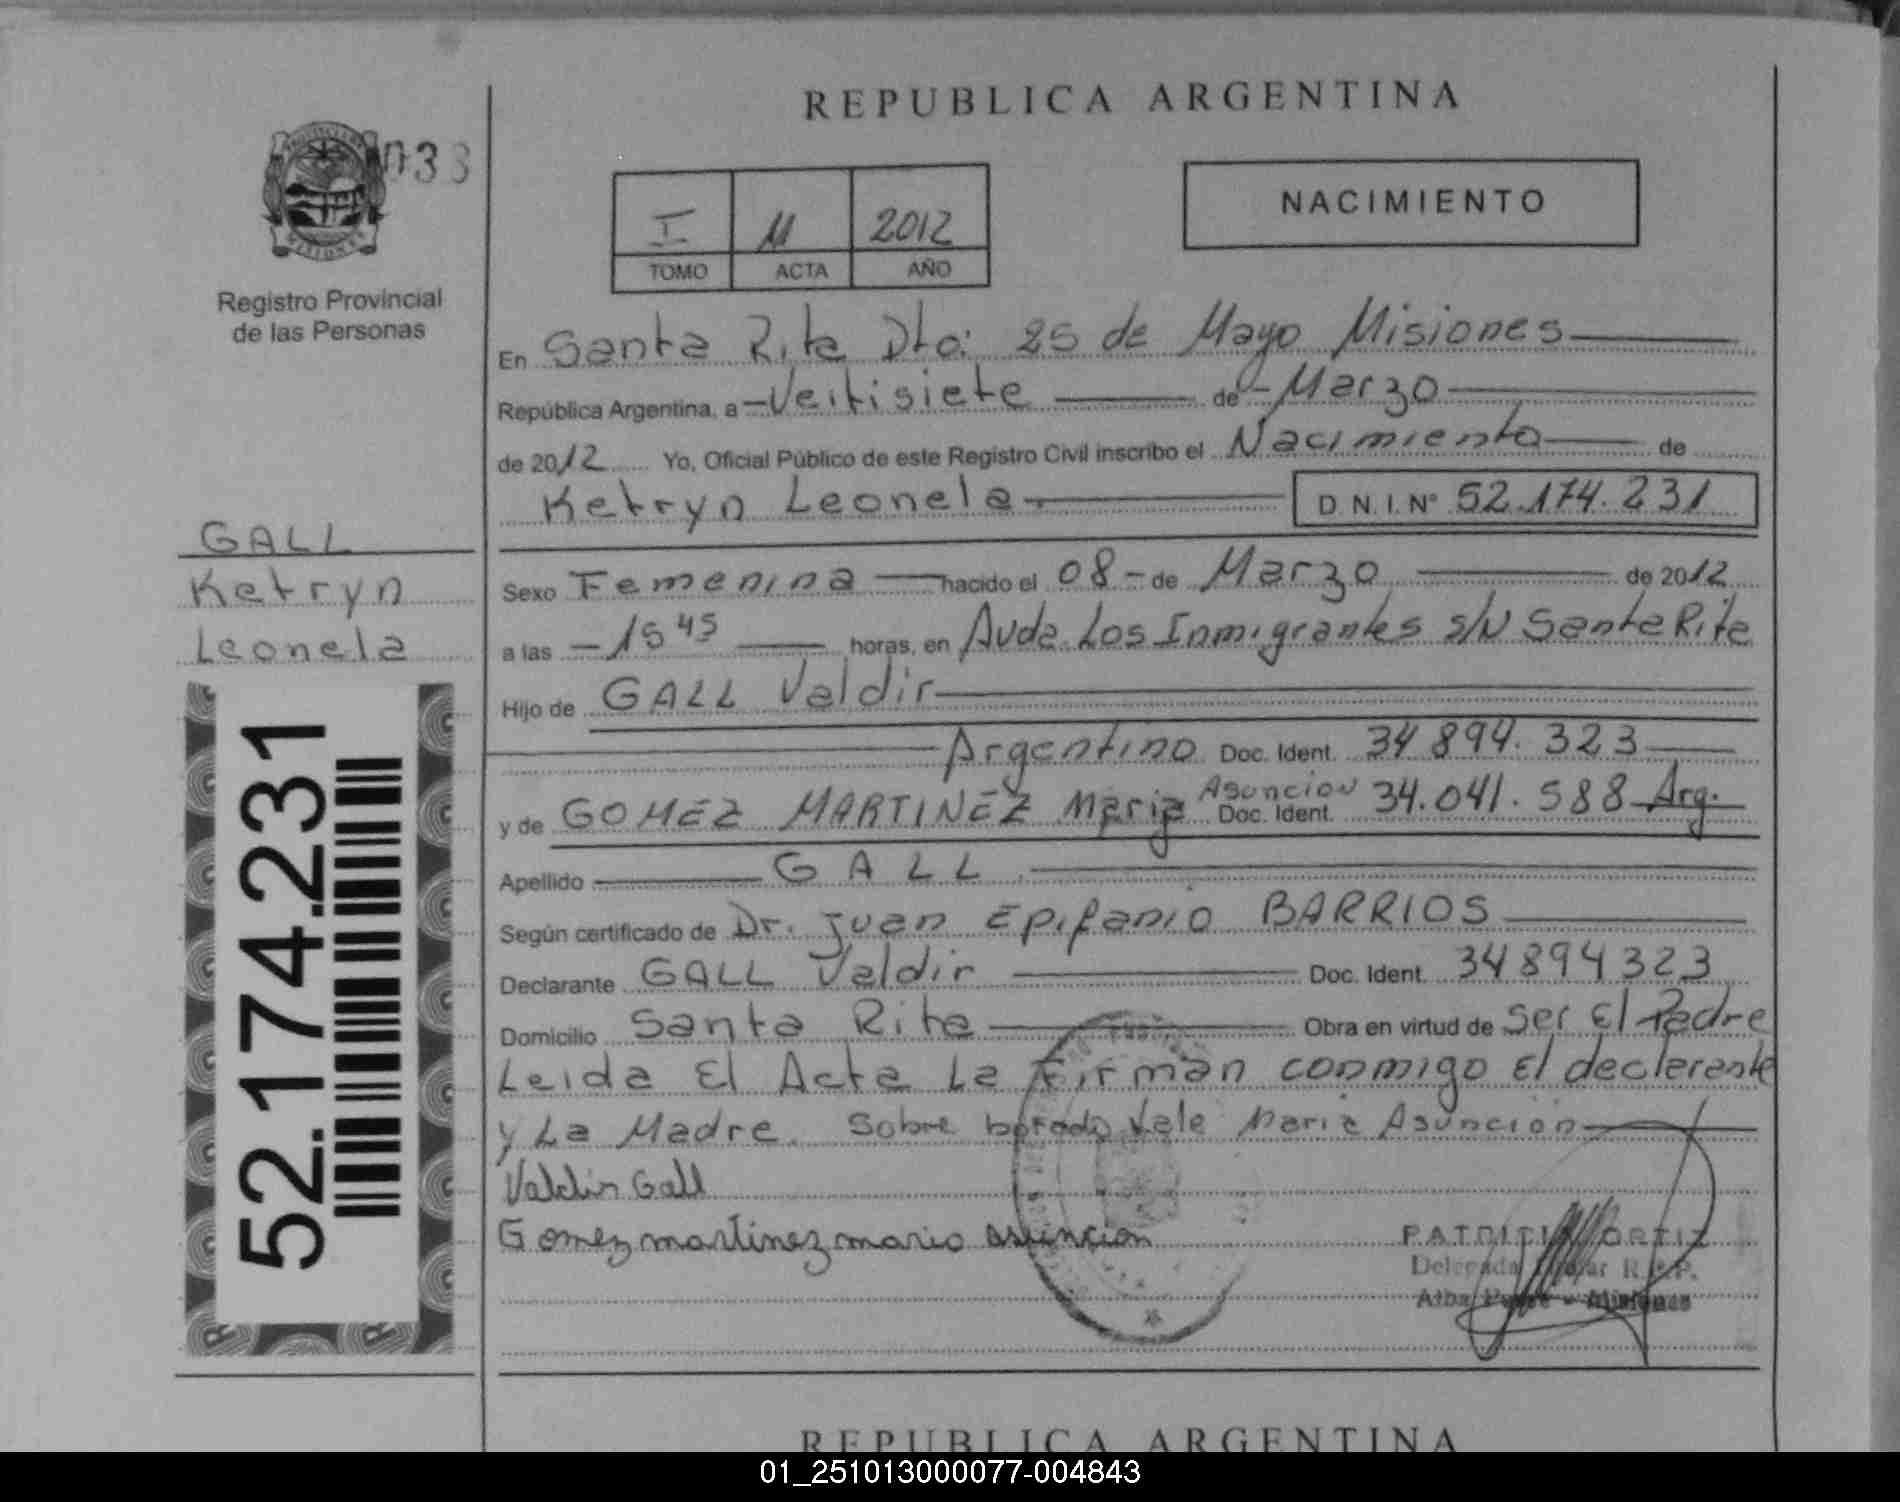 REPUBLICA ARGENTINA
033
NACIMIENTO
I 11 2012
TOMO ACTA AÑO
Registro Provincial
de las Personas
En Santa Rita Dto: 25 de Mayo Misiones
República Argentina, a - Veitisiete de - Marzo
de 2012 Yo, Oficial Público de este Registro Civil inscribo el Nacimiento de
Ketryn Leonela D.N.I. Nº 52.174.231
GALL
Ketryn
Leonela
Sexo Femenina nacido el 08 - de Marzo de 2012
a las - 15 45 horas, en Avda. Los Inmigrantes s/N Santa Rita
Hijo de GALL Valdir
Argentino Doc. Ident. 34 894. 323
y de GOMEZ MARTINEZ Maria Asuncion Doc. Ident. 34.041.588 Arg.
Apellido GALL
Según certificado de Dr. Juan Epifanio BARRIOS
Declarante GALL Valdir Doc. Ident. 34894323
Domicilio Santa Rita Obra en virtud de Ser El Padre
Leida El Acta La Firman conmigo El declarante
y La Madre. Sobre borrado Vale Maria Asuncion
Valdir Gall
Gomez martinez maria asuncion
PATRICIA ORTIZ
Delegada Titular R.P.P.
Alba Posse - Misiones
52.174.231
REPUBLICA ARGENTINA
01_251013000077-004843